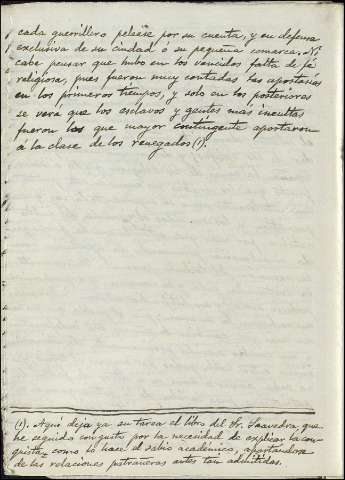 cada guerrillero pelease por su cuenta, y en defensa
exclusiva de su ciudad ó su pequeña comarca. Ni
cabe pensar que hubo en los vencidos falta de fé
religiosa, pues fueron muy contadas las apostasías
en los primeros tiempos, y solo en los posteriores
se verá que los esclavos y gentes más incultas
fueron los que mayor contingente aportaron
á la clase de los renegados (1).
(1). Aquí deja ya su tarea el libro del Sr. Saavedra que
he seguido con gusto por la necesidad de explicar la con-
quista, como lo hace el sabio académico, apartandola
de las relaciones patrañeras antes tan admitidas.